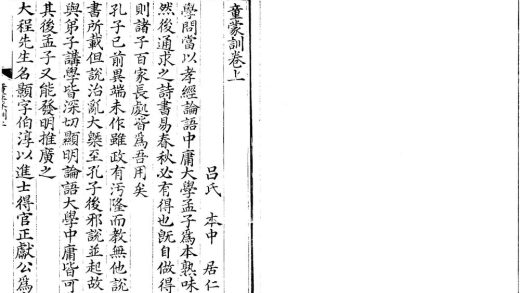 童蒙訓卷上
呂氏 本中 居仁
學問當以孝經論語中庸大學孟子為本熟味
然後通求之詩書易春秋必有得也旣自做得
則諸子百家長處皆為吾用矣
孔子已前異端未作雖政有汚隆而教無他說
書所載但說治亂大槩至孔子後邪說並起故
與弟子講學皆深切顯明論語大學中庸皆可
其後孟子又能發明推廣之
大程先生名顥字伯淳以進士得官正獻公為